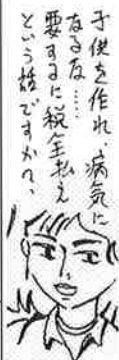 子供を作れ、病気に
なるな……
要するに税金払え
という話ですかい、